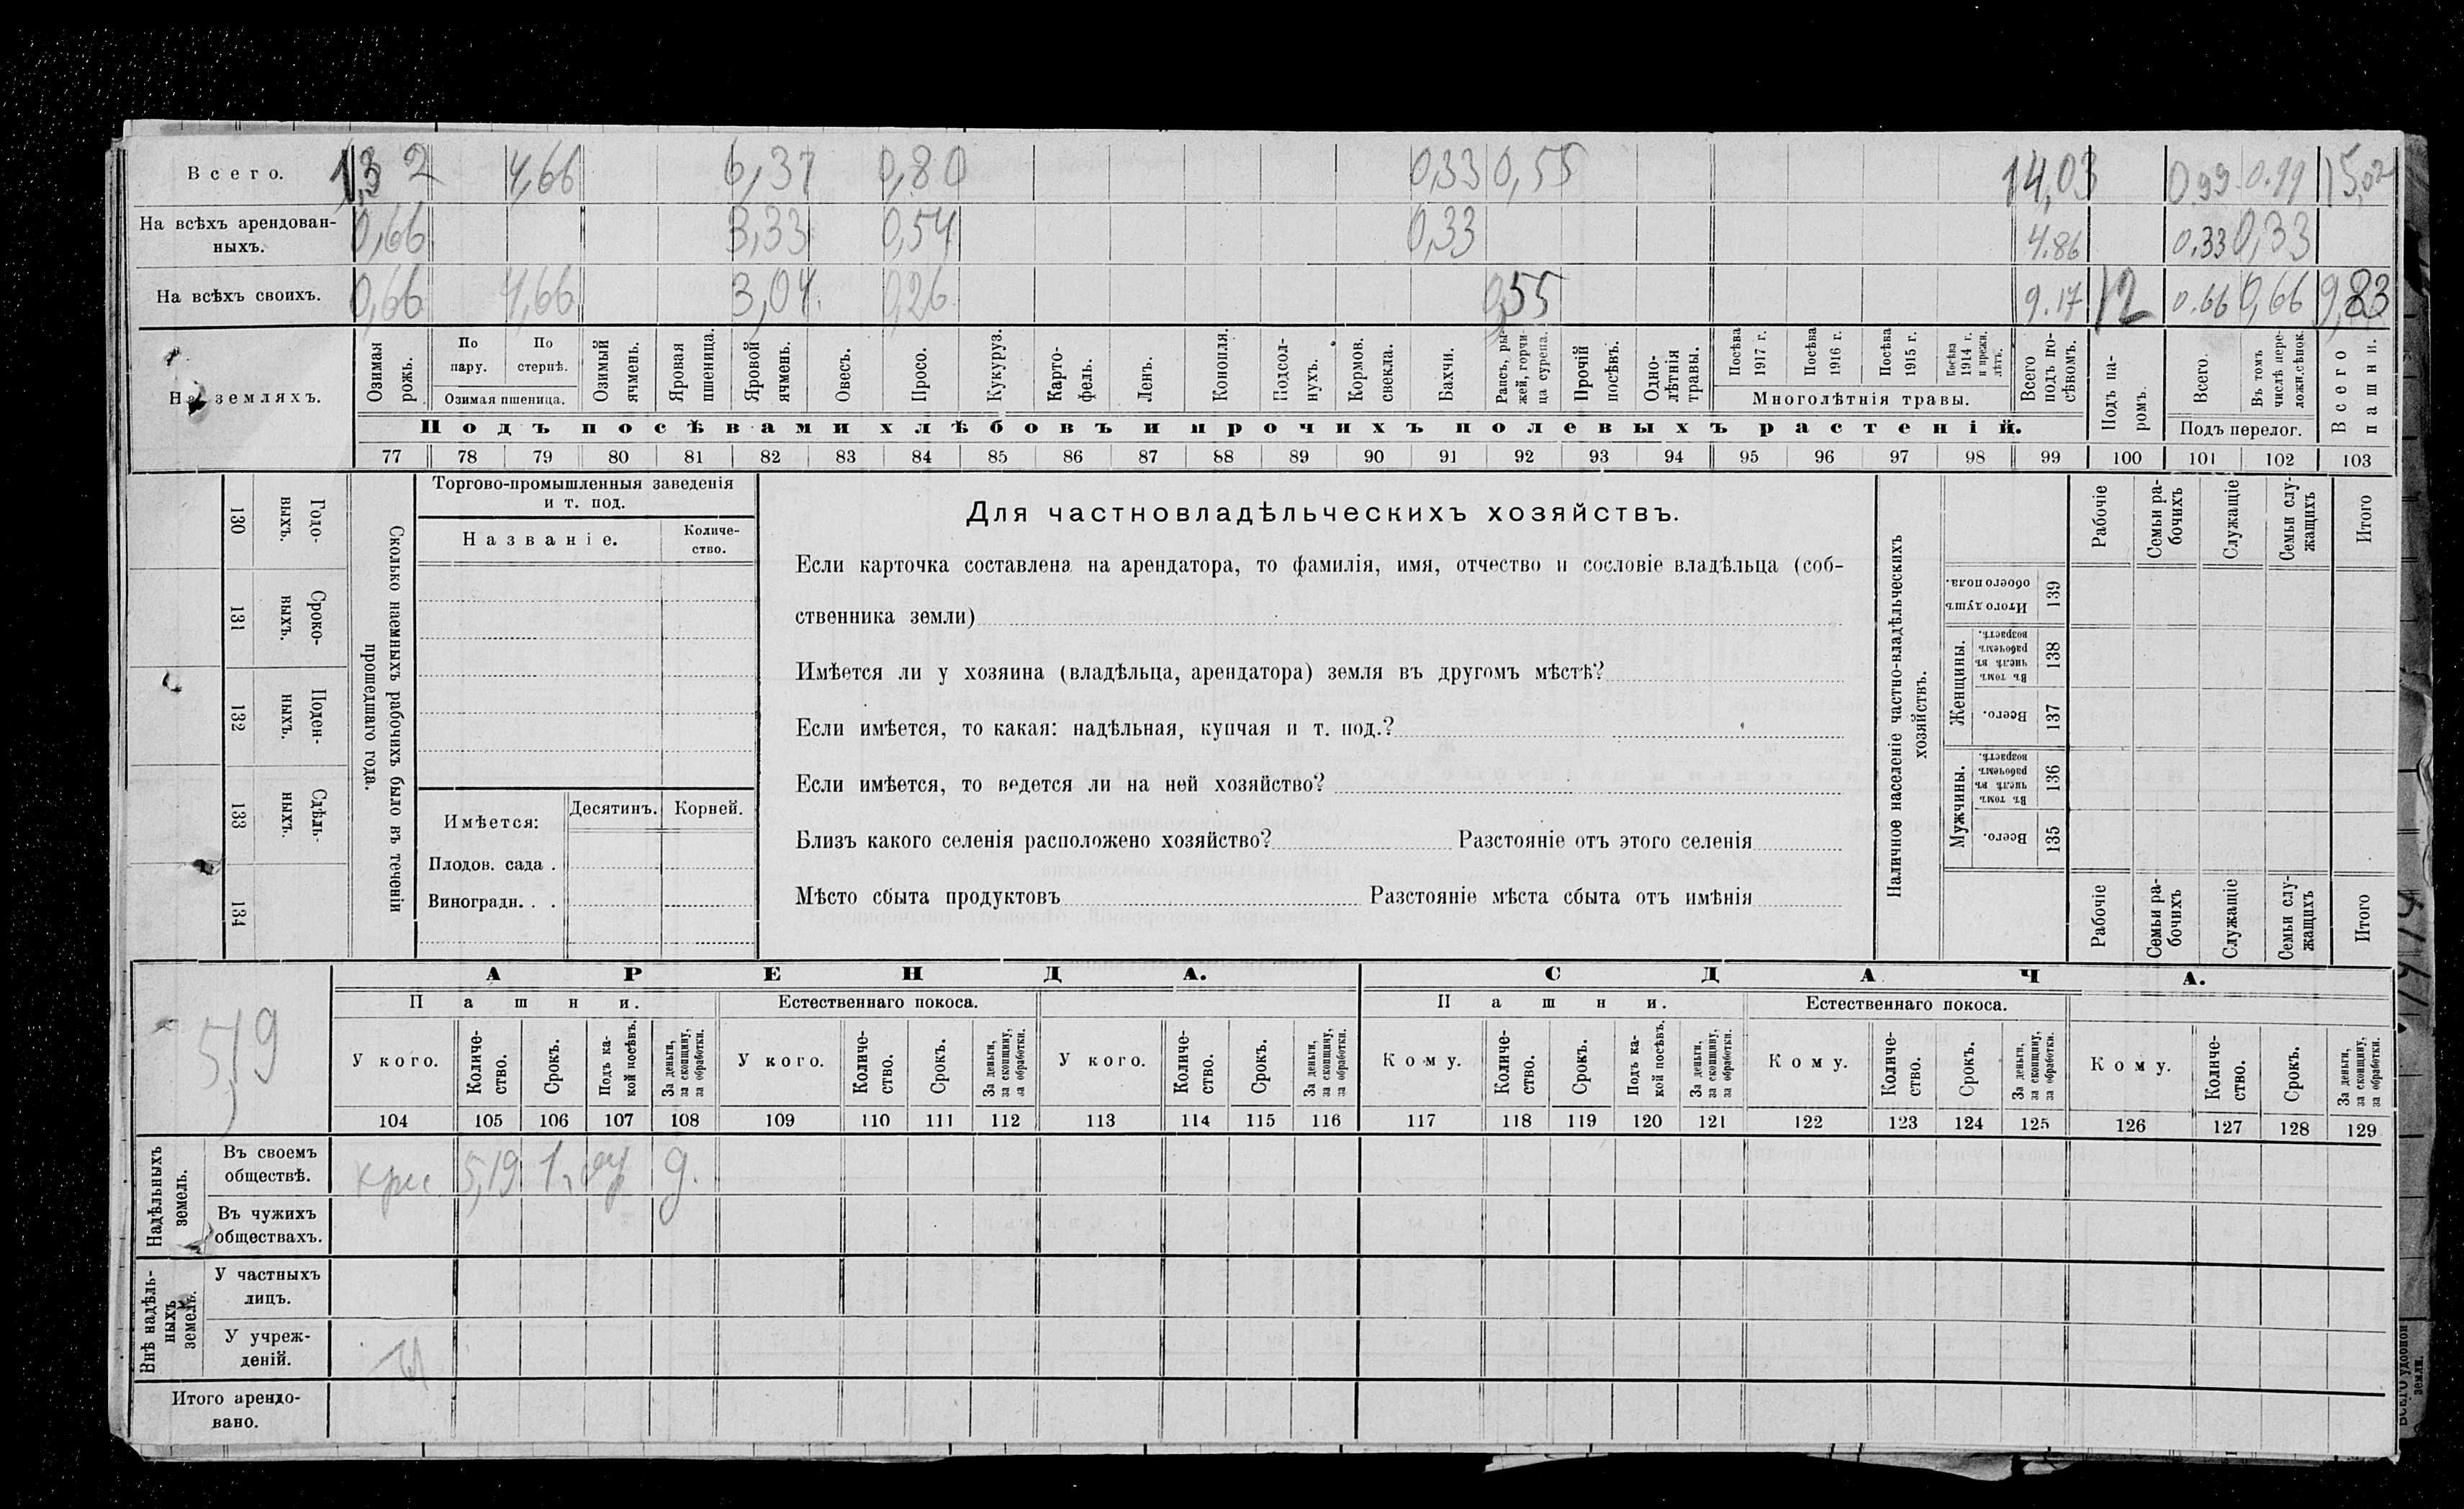 Всего. 1,32 4,66 6,37 0,80 0,33 0,55 14,03 0,99 0.99 15,02
На всѣхъ арендован-
ныхъ. 0,66 3,33 0,54 0,33 4.86 0.33 0,33
На всѣхъ своихъ. 0,66 4,66 3,04 0,26 0,55 9.17 12 0.66 0,66 9,83
На земляхъ.
Озимая рожь.
По пару.
По стернѣ.
Озимая пшеница.
Озимый ячмень.
Яровая пшеница.
Яровой ячмень.
Овесъ.
Просо.
Кукуруз.
Карто-
фель.
Ленъ.
Конопля.
Подсол-
нухъ.
Кормов. свекла.
Бахчи.
Рапсъ, ры-
жей, горчи-
ца сурепа.
Прочій посѣвъ.
Одно-
лѣтнія травы.
Посѣва 1917 г.
Посѣва 1916 г.
Посѣва 1915 г.
Посѣва 1914 г. и прежн. лѣтъ.
Многолѣтнія травы.
Всего подъ по-
сѣвомъ.
Подъ па-
ромъ.
Всего.
Въ томъ числѣ пере-
ложн.сѣнок.
Подъ перелог.
Всего пашни.
Подъ посѣвами хлѣбовъ и прочихъ полевыхъ растеній.
77 78 79 80 81 82 83 84 85 86 87 88 89 90 91 92 93 94 95 96 97 98 99 100 101 102 103
Сколько наемныхъ рабочихъ было въ теченіи
прошедшаго года.
Годо-
выхъ. 130
Сроко-
выхъ. 131
Поден-
ныхъ. 132
Сдѣль-
ныхъ. 133
134
Торгово-промышленныя заведенія
и т. под.
Названіе.
Количе-
ство.
Имѣется: Десятинъ. Корней.
Плодов. сада .
Виноградн. . .
Для частновладѣльческихъ хозяйствъ.
Если карточка составлена на арендатора, то фамилія, имя, отчество и сословіе владѣльца (соб-
ственника земли)
Имѣется ли у хозяина (владѣльца, арендатора) земля въ другомъ мѣстѣ?
Если имѣется, то какая: надѣльная, купчая и т. под.?
Если имѣется, то ведется ли на ней хозяйство?
Близъ какого селенія расположено хозяйство? Разстояніе отъ этого селенія
Мѣсто сбыта продуктовъ Разстояніе мѣста сбыта отъ имѣнія
Наличное населеніе частно-владѣльческихъ
хозяйствъ.
Рабочіе
Семьи ра-
бочихъ
Служащіе
Семьи слу-
жащихъ
Итого
Итого душъ обоего пола. 139
Женщины.
Въ томъ числѣ въ рабочемъ возрастѣ. 138
Всего. 137
Мужчины.
Въ томъ числѣ въ рабочемъ возрастѣ. 136
Всего. 135
Рабочіе
Семьи ра-
бочихъ
Служащіе
Семьи слу-
жащихъ
Итого
5,19
АРЕНДА. СДАЧА.
Пашни. Естественнаго покоса. Пашни. Естественнаго покоса.
У кого.
Количе-
ство.
Срокъ.
Подъ ка-
кой посѣвъ.
За деньги, за скопщину, за обработки.
У кого.
Количе-
ство.
Срокъ.
За деньги, за скопщину, за обработки.
У кого.
Количе-
ство.
Срокъ.
За деньги, за скопщину, за обработки.
Кому.
Количе-
ство.
Срокъ.
Подъ ка-
кой посѣвъ.
За деньги, за скопщину, за обработки.
Кому.
Количе-
ство.
Срокъ.
За деньги, за скопщину, за обработки.
Кому.
Количе-
ство.
Срокъ.
За деньги, за скопщину, за обработки.
104 105 106 107 108 109 110 111 112 113 114 115 116 117 118 119 120 121 122 123 124 125 126 127 128 129
Надѣльныхъ
земель.
Въ своемъ
обществѣ. 5,19 д.
Въ чужихъ
обществахъ.
Внѣ надѣль-
ныхъ
земель.
У частныхъ
лицъ.
У учреж-
деній.
Итого арендо-
вано.